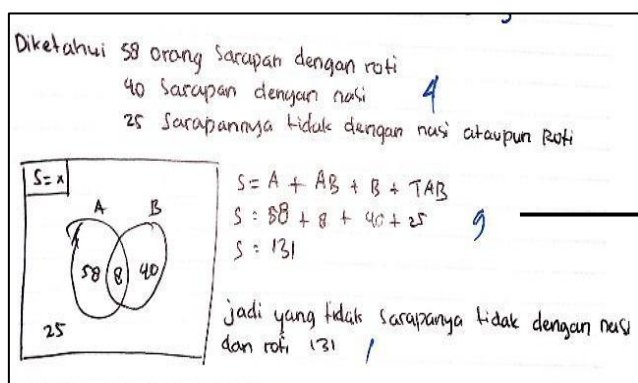 Diketahui 58 orang sarapan dengan roti
40 sarapan dengan nasi
4
25 sarapannya tidak dengan nasi ataupun Roti
S = x
A B
58 8 40
25
S = A + AB + B + TAB
S : 58 + 8 + 40 + 25
9
S = 131
jadi yang tidak sarapanya tidak dengan nasi
dan roti 131
1